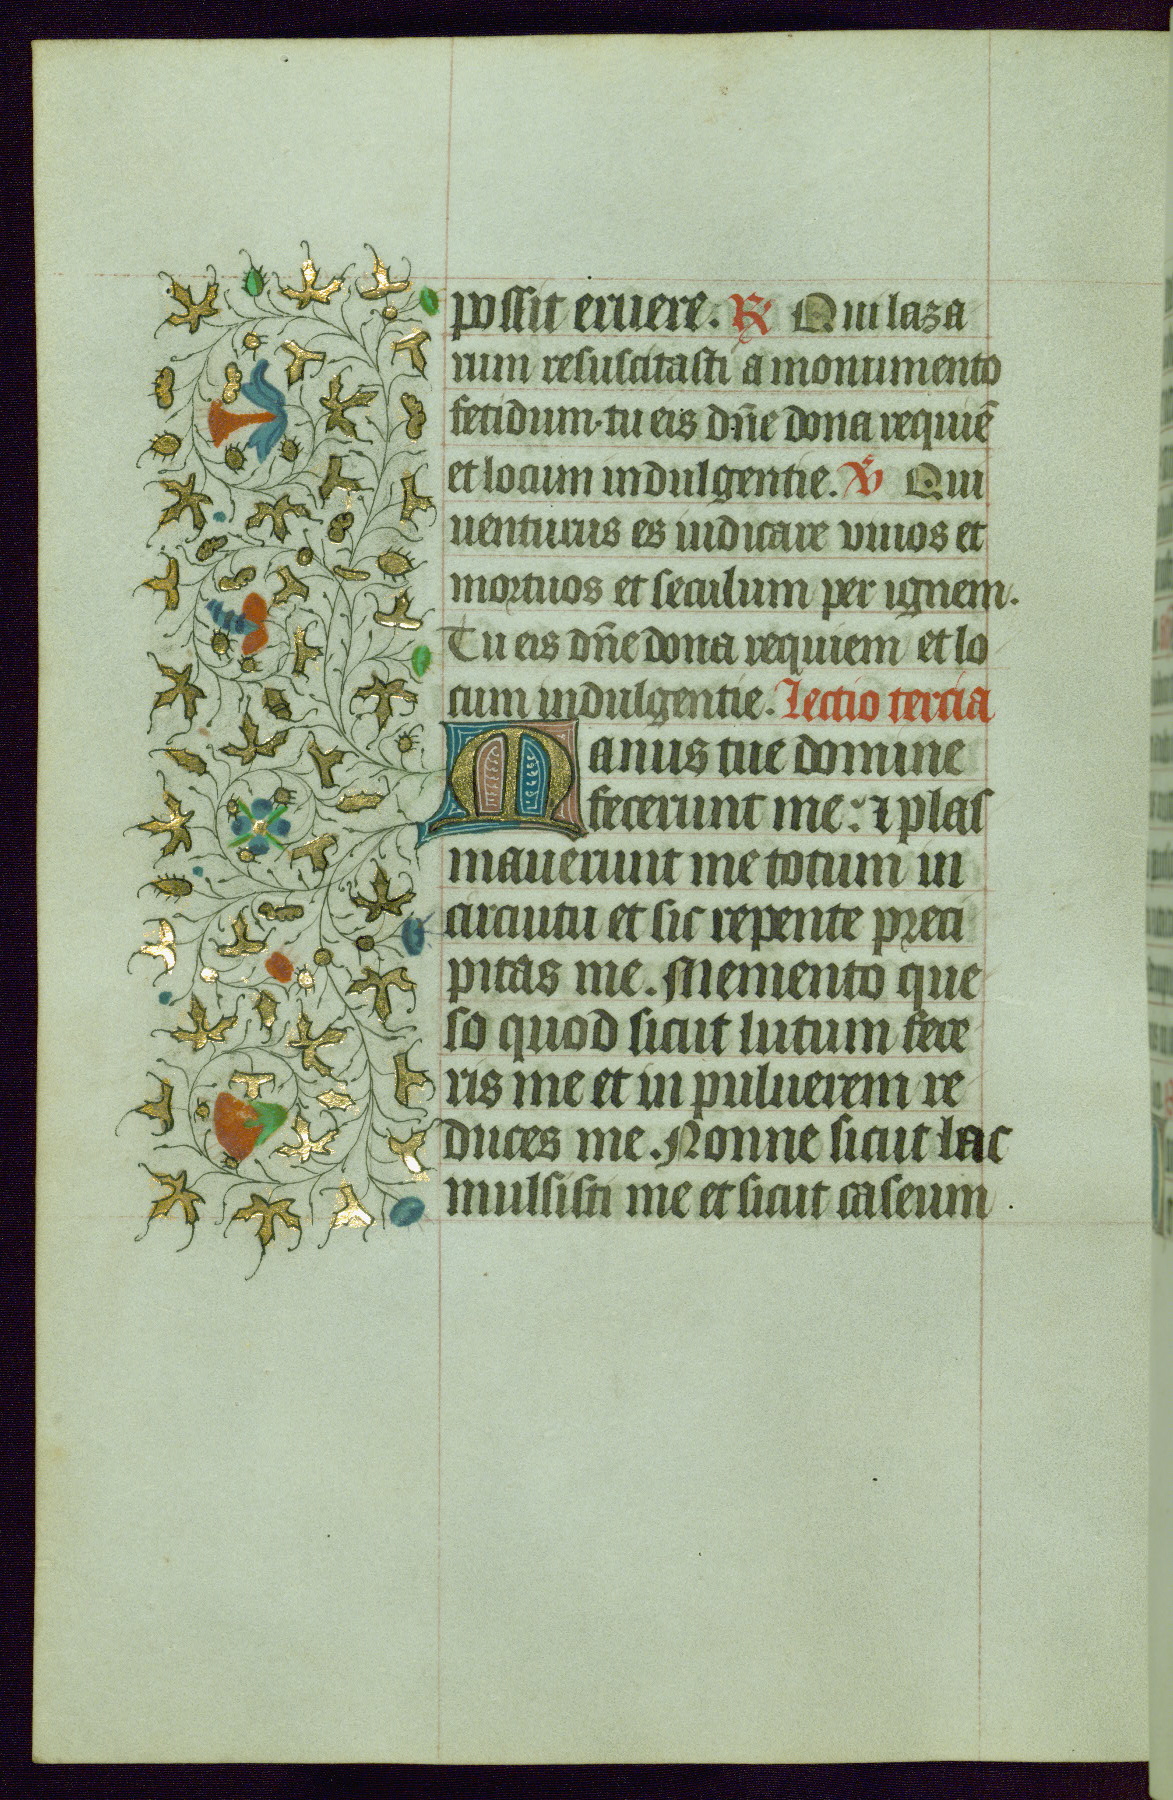 possit eruere. R Qui laza
rum resuscitasti a monumento
fetidum. tu eis dñe dona requiẽ
et locum indulgentie. V Qui
uenturus es iudicare viuos et
mortuos et seculum per ignem.
Tu eis dñe dona requiem et lo
cum indulgentie. Lectio tercia
Manus tue domine
fecerunt me: ⁊ plas
mauerunt me totum in
circuitu et sic repente preci
pitas me. Memento que
so quod sicut lutum fece
ris me et in puluerem re
duces me. Nonne sicut lac
mulsisti me et sicut caseum